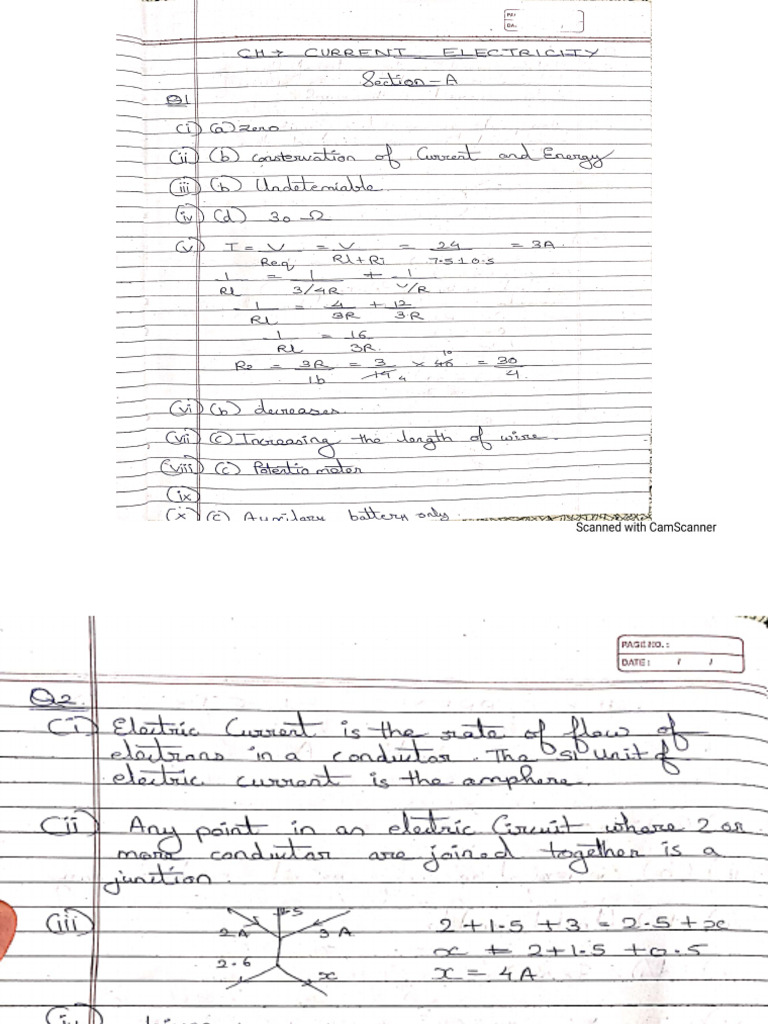 CH → CURRENT ELECTRICITY
Section - A
Q1
(i) (a) zero
(ii) (b) conservation of Current and Energy
(iii) (b) Undeterniable
(iv) (d) 30 Ω
(v) I = V/Req = V/Rl+Ri = 24/7.5+0.5 = 3A
1/Rl = 1/3/4R + 1/ /R
1/Rl = 4/3R + 12/3R
1/Rl = 16/3R
= 3R/16 = 3/ × 10 = 30/4
(vi) (b) decreases
(vii) (c) Increasing the length of wire.
(viii) (c) Potentio motor
(ix)
(x) (c) Auxilary battery only
Scanned with CamScanner
PAGE NO.:
DATE: / /
Q2
(i) Electric Current is the rate of flow of
electrons in a conductor. The SI unit of
electric current is the amphere.
(ii) Any point in an electric Circuit where 2 or
more conductor are joined together is a
junction
(iii) 1.5
2A 3A 2+1.5+3 = 2.5+x
2.6 x x = 2+1.5+0.5
x = 4A
(iv)